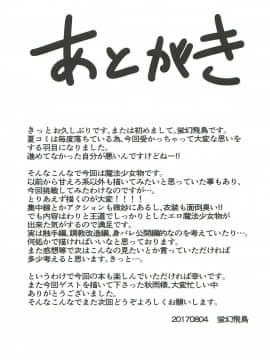 あとがき
きっとお久しぶりです。または初めまして、蛍幻飛鳥です。
夏コミは毎度落ちている為、今回受かっちゃって大変な思いを
する羽目になりました。
進めてなかった自分が悪いんですけどねー!!
そんなこんなで今回は魔法少女物です。
以前から甘えろ系以外も描いてみたいと思っていた事もあり、
今回挑戦してみたわけなのですが…。
とりあえず描くのが大変!!!!
集中線とかアクションも微妙にあるし、衣装も面倒臭い!!
でも内容はわりと王道でしっかりとしたエロ魔法少女物が
出来た気がするので満足です。
実は触手編、調教改造編、身バレ公開編的なのを考えていたり…、
何処かで描ければいいなと思っております。
また感想等で次はこんなの見たいとか言っていただければ
多少考えると思います。きっと…。
というわけで今回の本も楽しんでいただければ幸いです。
また今回ゲストを描いて下さった秋雨様、大変忙しい中
ありがとうございました。
そんなこんなでまた次回どうぞよろしくお願いします。
20170804 蛍幻飛鳥